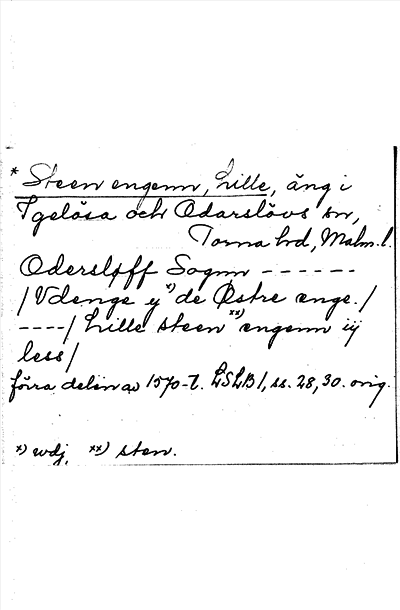 * Steen engenn, Lille, äng i
Igelösa och Odarslövs sn,
Torna hd, Malm. l.
Odersløff Sognn ------
/ Vdenge y *) de Østre enge. /
----/ Lille steen **) engenn iij
less /
förra delen av 1570-t. LSLB I, ss. 28, 30. orig.
*) wdj. **) sten.